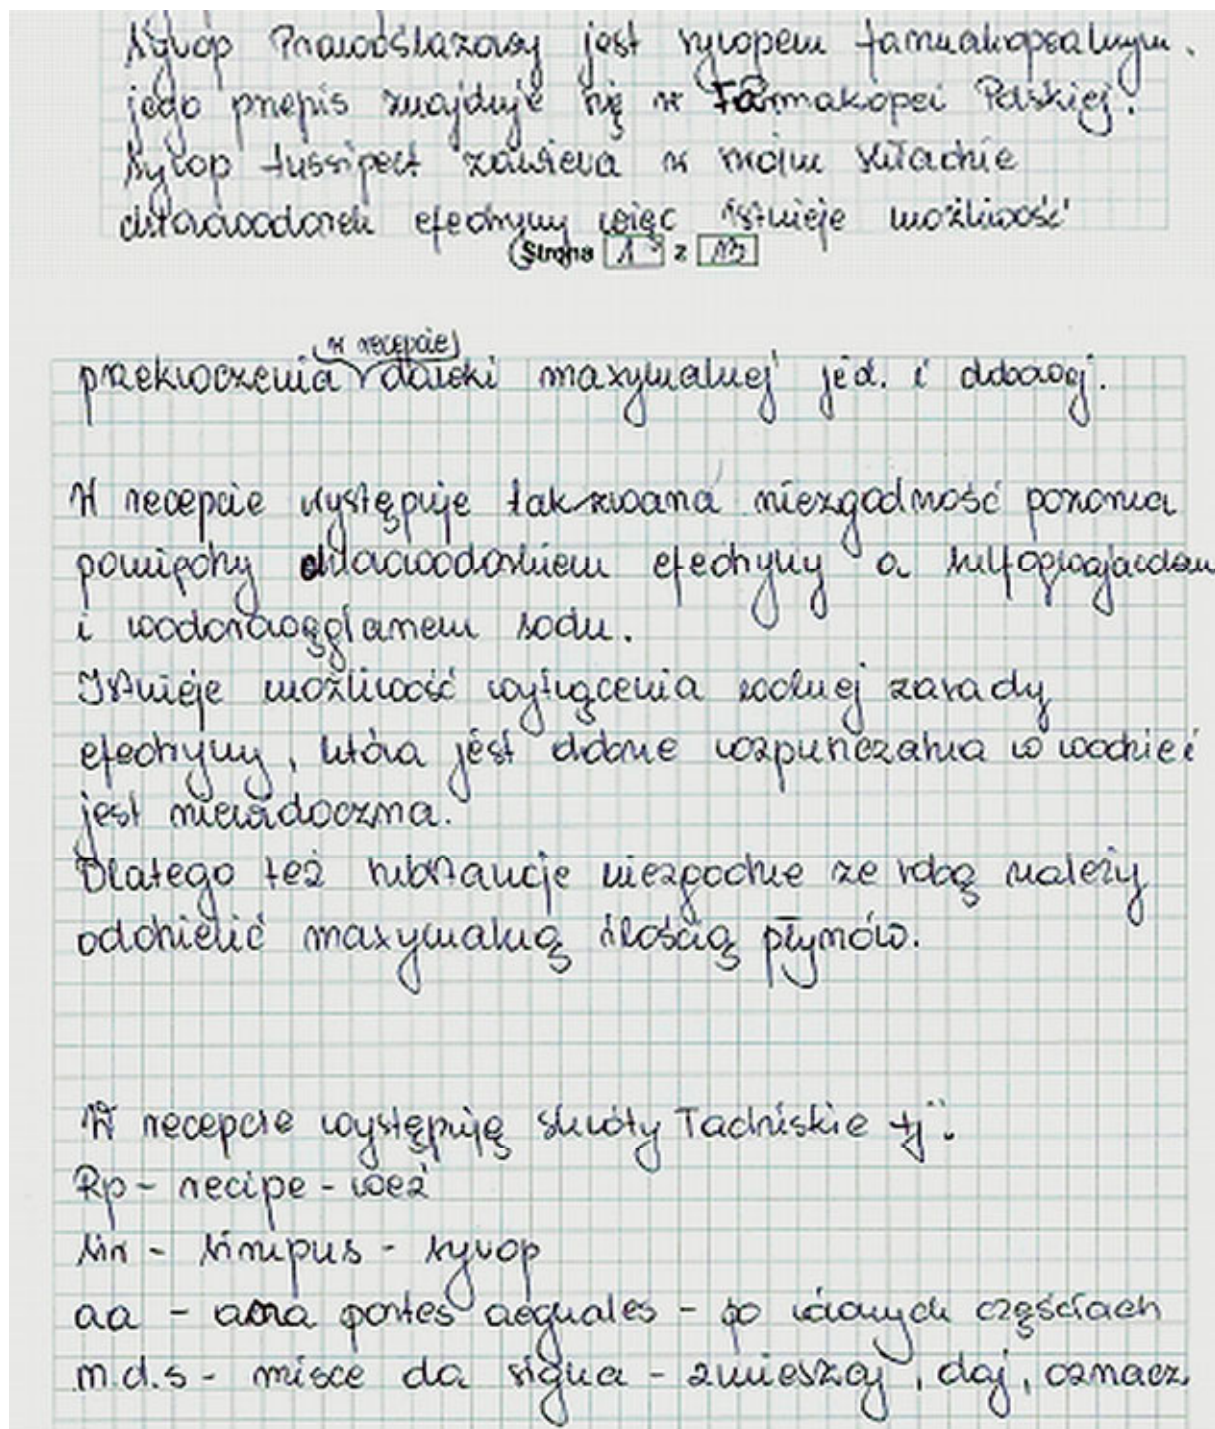 Syrop Prawoślazowy jest syropem farmakopealnym.
jego przepis znajduje się w Farmakopei Polskiej.
Syrop tussipect zawiera w swoim składzie
chlorowodorek efedryny więc istnieje możliwość
Strona 1 z 13
w recepcie
przekroczenia dawki maxymalnej jed. i dobowej.
W recepcie występuje tak zwana niezgodność pozorna
pomiędzy chlorowodorkiem efedryny a sulfogwajacolem
i wodorowęglanem sodu.
Istnieje możliwość wytrącenia wolnej zasady
efedryny, która jest dobrze rozpuszczalna w wodzie i
jest niewidoczna.
Dlatego też substancje niezgodne ze sobą należy
oddzielić maxymalną ilością płynów.
W recepcie występują skróty Łacińskie tj:
Rp - recipe - weź
Sir - Sirupus - syrop
aa - ana partes aequales - po równych częściach
m.d.s - misce da signa - zmieszaj, daj, oznacz.